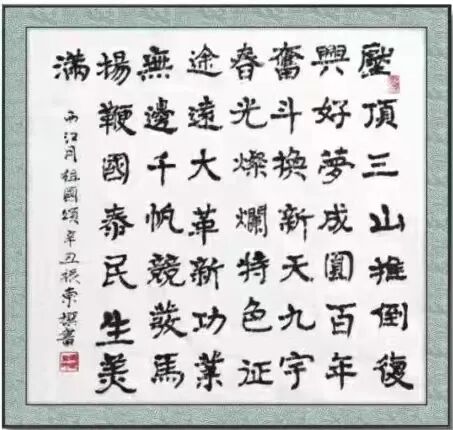 壓頂三山推倒復
興好夢成圓百年
奮斗換新天九宇
春光燦爛特色征
途遠大革新功業
無邊千帆競發馬
揚鞭國泰民生美
滿
西江月祖國頌辛丑振東撰書